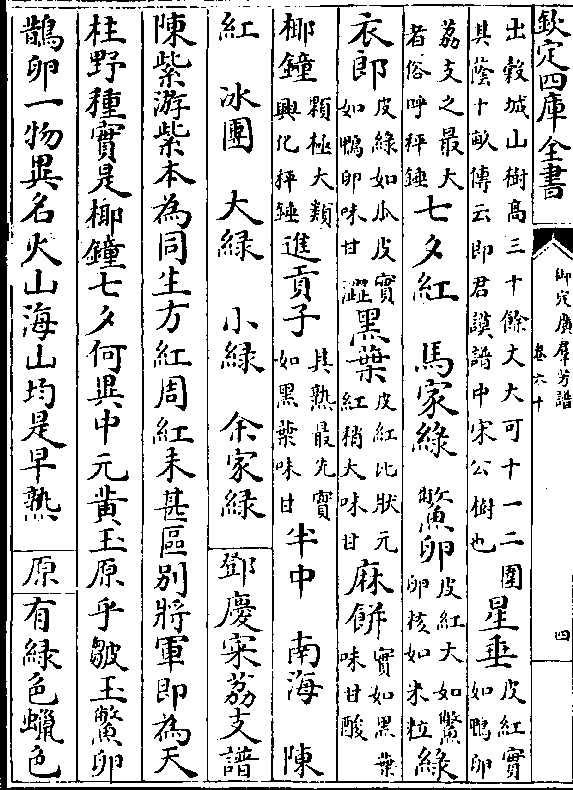 欽定四庫全書
御定廣羣芳譜
卷六十
四
出穀城山樹高三十餘丈大可十一二圍
其蔭十畝傳云即君謨譜中宋公樹也
星垂
皮紅實
如鴨卵
荔支之最大
者俗呼秤錘
七夕紅 馬家綠 鱉卵
皮紅大如鱉
卵核如米粒
綠
衣郎
皮綠如瓜皮實
如鴨卵味甘澀
黑葉
皮紅比狀元
紅稍大味甘
麻餅
實如黑葉
味甘酸
椰鐘
顆極大類
興化秤錘
進貢子
其熟最先實
如黑葉味甘
半中 南海 陳
紅 冰團 大綠 小綠 余家綠
鄧慶寀荔支譜
陳紫游紫本為同生方紅周紅未甚區別將軍即為天
柱野種實是椰鐘七夕何異中元黃玉原乎皺玉鱉卵
鵲卵一物異名火山海山均是早熟
原
有綠色蠟色